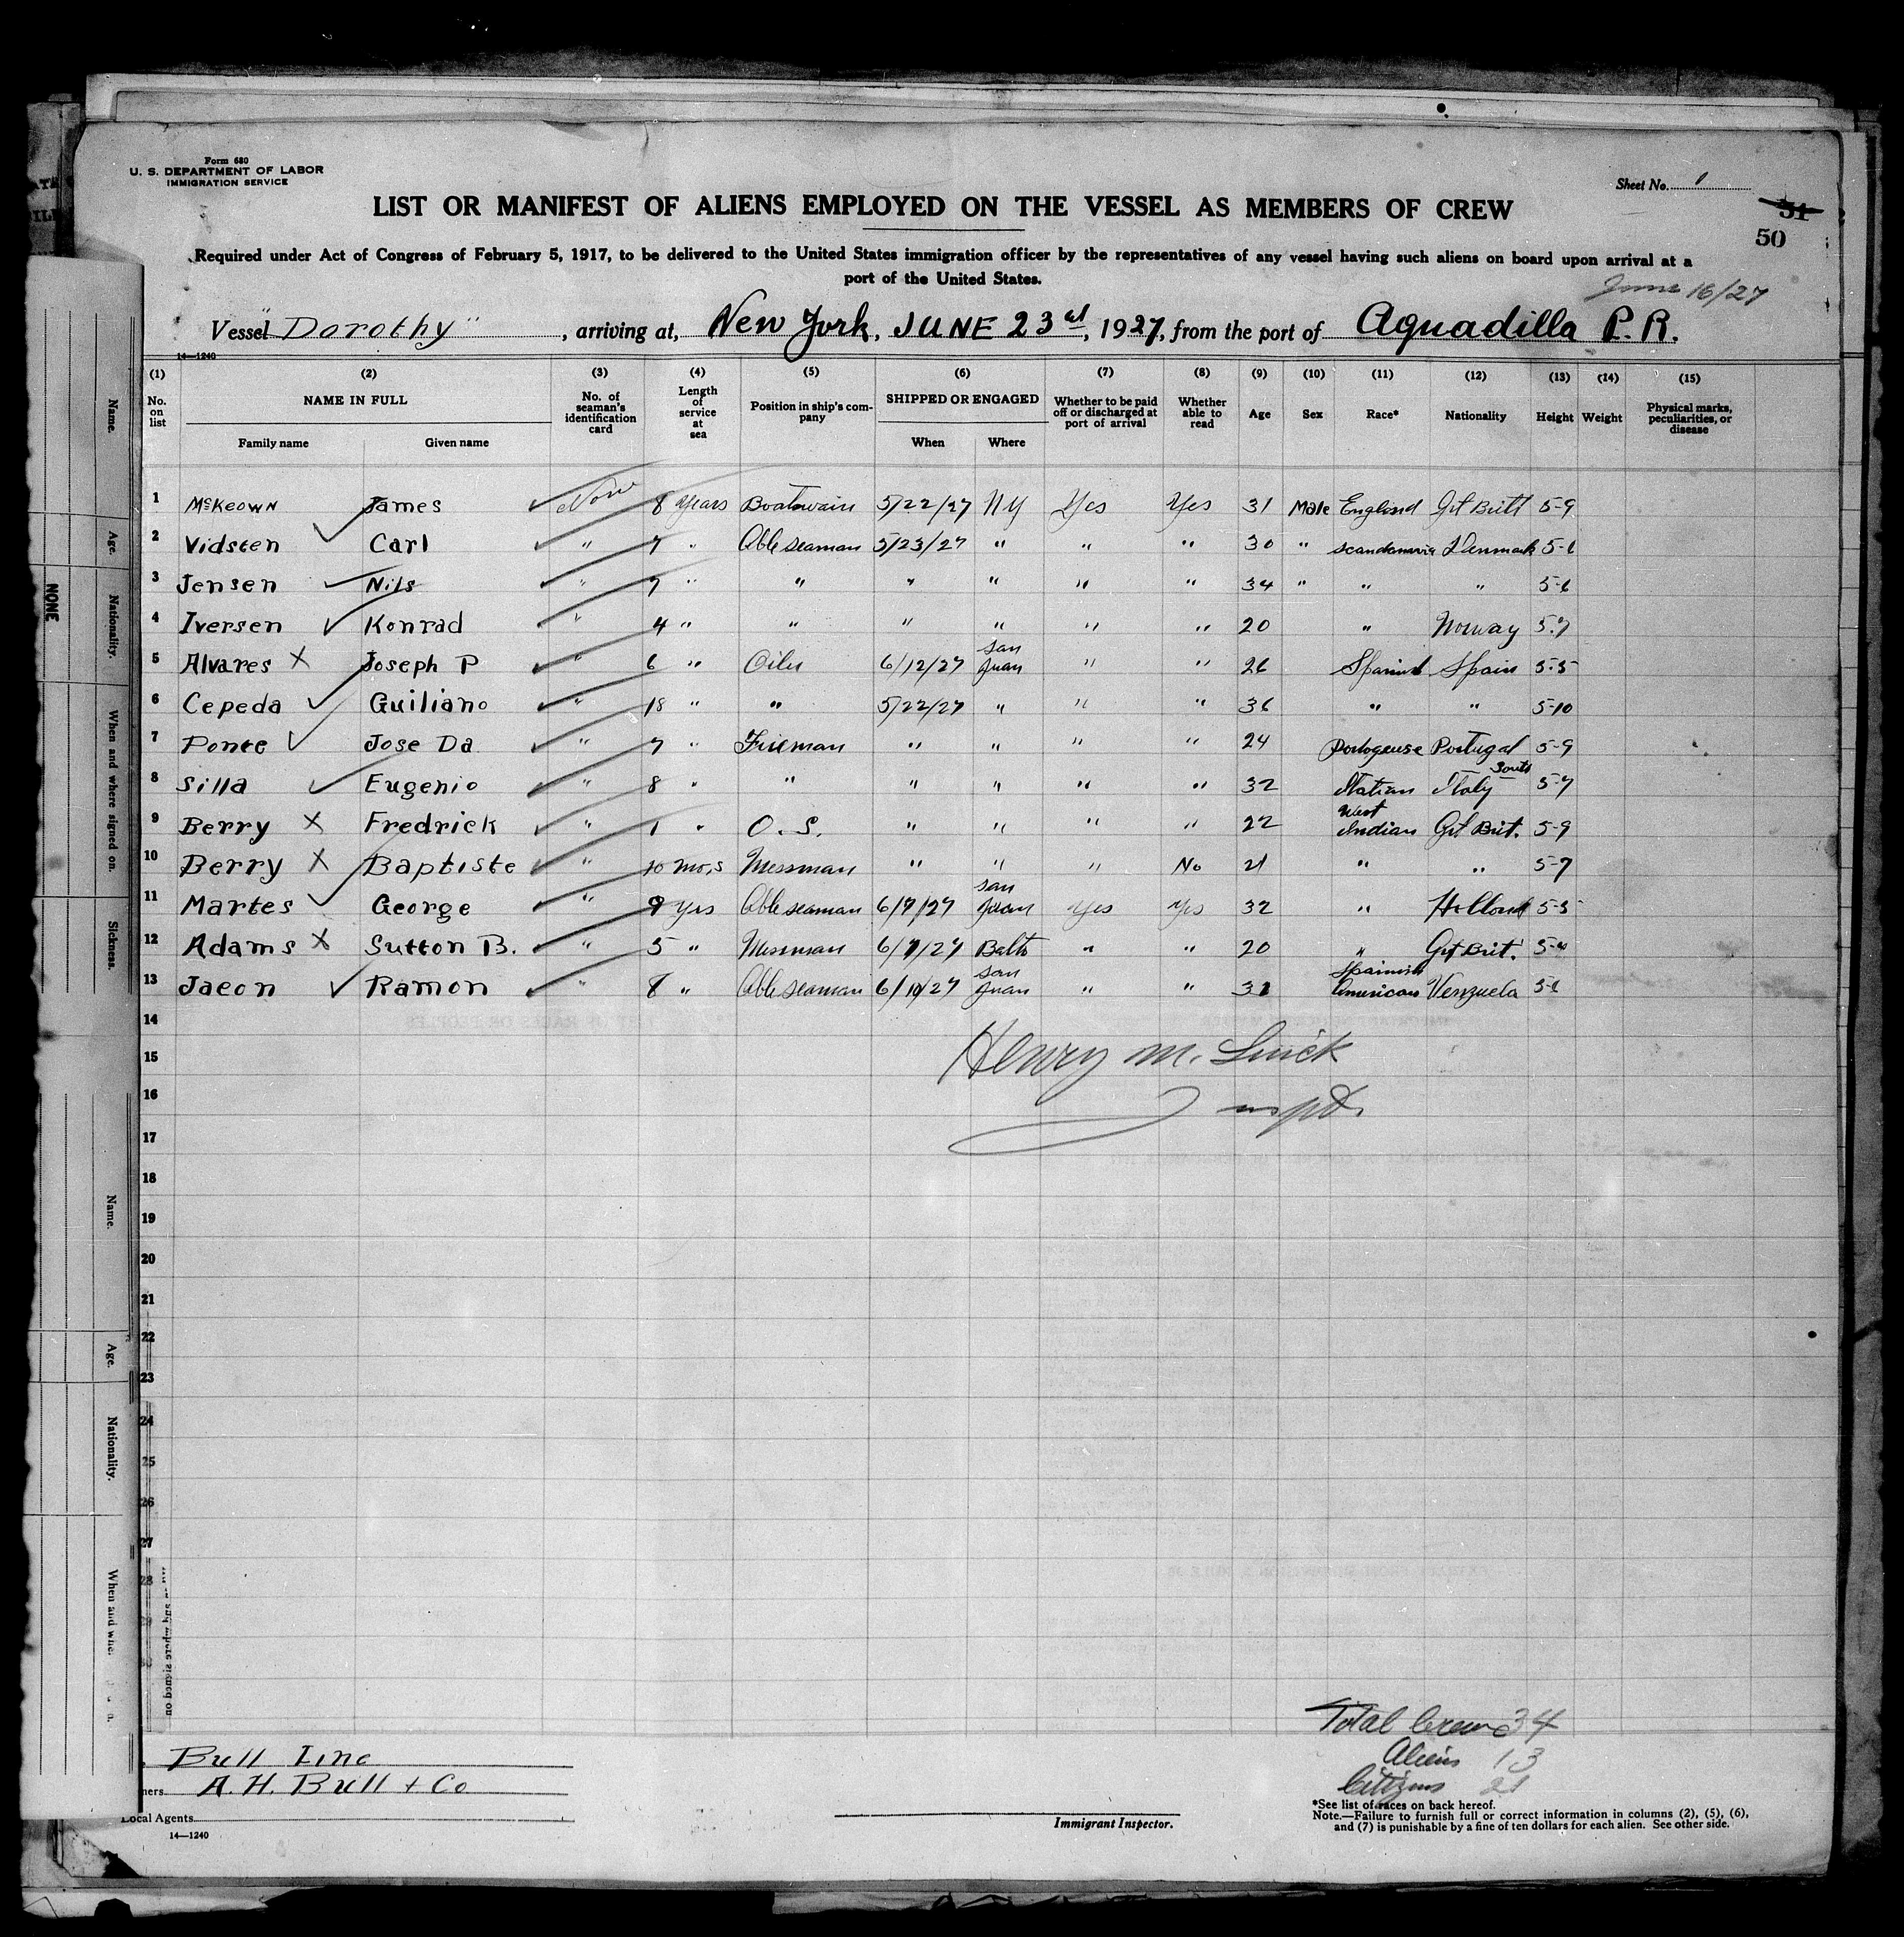 Form 680
U. S. DEPARTMENT OF LABOR
IMMIGRATION SERVICE
Sheet No. 1
LIST OR MANIFEST OF ALIENS EMPLOYED ON THE VESSEL AS MEMBERS OF CREW
51
50
Required under Act of Congress of February 5, 1917, to be delivered to the United States immigration officer by the representatives of any vessel having such aliens on board upon arrival at a
port of the United States.
June 16/27
Vessel "Dorothy", arriving at, New York, JUNE 23rd, 1927, from the port of Aguadilla P.R.
14—1240
(1) (2) (3) (4) (5) (6) (7) (8) (9) (10) (11) (12) (13) (14) (15)
No. on list NAME IN FULL Family name Given name No. of seaman's identification card Length of service at sea Position in ship's company SHIPPED OR ENGAGED When Where Whether to be paid off or discharged at port of arrival Whether able to read Age Sex Race* Nationality Height Weight Physical marks, peculiarities, or disease
1 McKeown James 8 Years Boatswain 5/22/27 NY Yes Yes 31 Male England Grt Britt 5-9
2 Vidsten Carl " 7 " Able seaman 5/23/27 " " " 30 " Scandanavia Denmark 5-6
3 Jensen Nils " 7 " " " " " " 34 " " " 5-6
4 Iversen Konrad " 4 " " " " " " 20 " Norway 5-7
5 Alvares X Joseph P " 6 " Oiler 6/12/27 San Juan " " 26 Spanish Spain 5-5
6 Cepeda Guiliano " 18 " " 5/22/27 " " " 36 " " 5-10
7 Ponte Jose Da " 7 " Fireman " " " " 24 Portogeuse Portugal 5-9
8 Silla Eugenio " 8 " " " " " " 32 Italian Italy South 5-7
9 Berry X Fredrick " 1 " O. S. " " " " 22 West Indian Grt Brit. 5-9
10 Berry X Baptiste " 10 mo,s Messman " " " No 21 " " 5-7
11 Martes George " 9 yrs Able seaman 6/7/27 San Juan Yes Yes 32 " Holland 5-5
12 Adams X Sutton B. " 5 " Messman 6/7/27 Balto " " 20 " Grt Brit.
13 Jaeon Ramon " 8 " Able seaman 6/10/27 San Juan " " Spainish American Venzuela 5-6
14
15
16
17
18
19
20
21
22
23
24
25
26
27
28
Henry M.
Inspt.
Total Crew 34
Aliens 13
Citizens 21
Bull Line
A. H. Bull + Co
Local Agents
14—1240
Immigrant Inspector.
*See list of races on back hereof.
Note.—Failure to furnish full or correct information in columns (2), (5), (6),
and (7) is punishable by a fine of ten dollars for each alien. See other side.
Name.
Age.
Nationality.
When and where signed on.
Sickness.
NONE
Name.
Age.
Nationality.